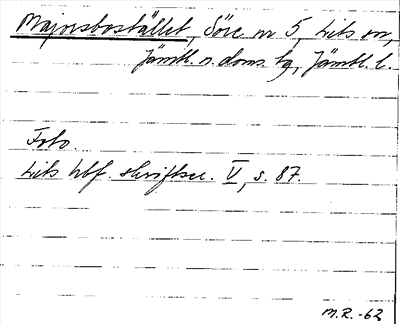 Majorsbostället, Söre nr 5, Lits sn,
Jämtl. n. doms. tg, Jämtl. l.
Foto.
Lits hbf. skriftser. V, s. 87.
M.R.-62